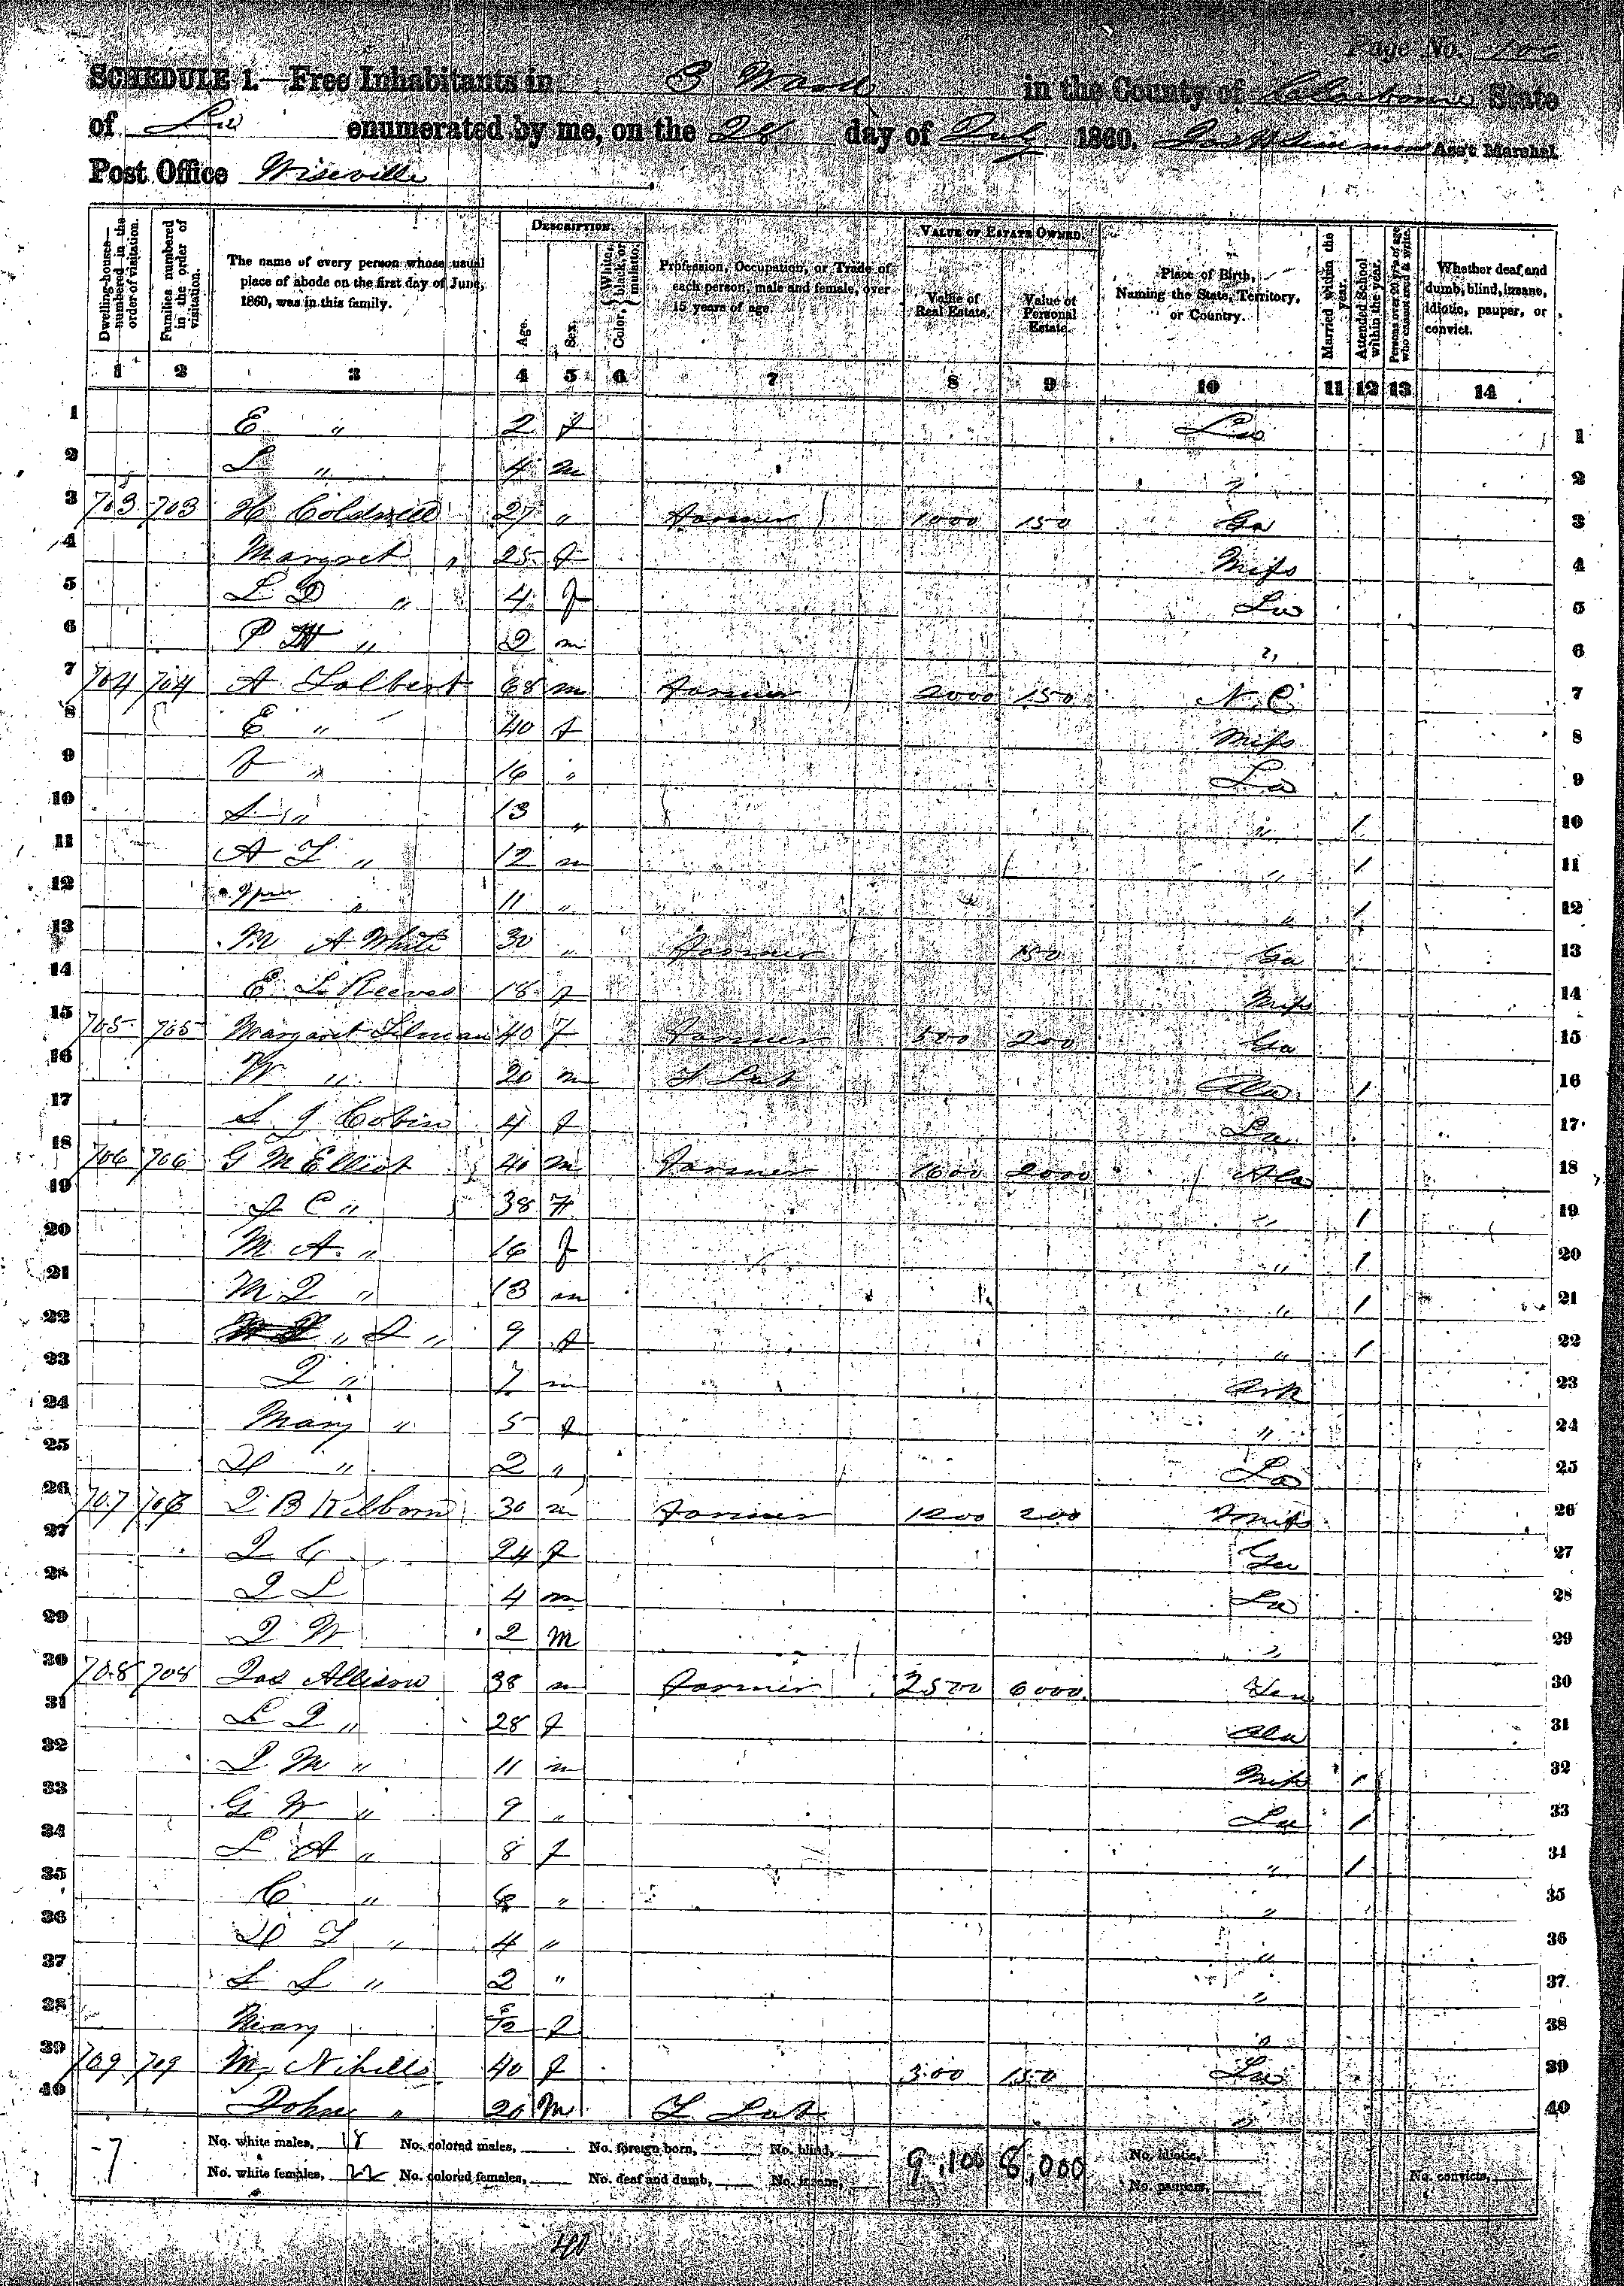 Page No.
SCHEDULE 1.—Free Inhabitants in 3 Ward in the County of Claiborne State
of La enumerated by me, on the 28 day of July 1860. Ass't Marshal.
Post Office Wiseville
Dwelling-house— numbered in the order of visitation.
Families numbered in the order of visitation.
The name of every person whose usual place of abode on the first day of June, 1860, was in this family.
DESCRIPTION.
Age.
Sex.
Color, { White, black, or mulatto.
Profession, Occupation, or Trade of each person, male and female, over 15 years of age.
VALUE OF ESTATE OWNED.
Value of Real Estate.
Value of Personal Estate.
Place of Birth, Naming the State, Territory, or Country.
Married within the year.
Attended School within the year.
Persons over 20 y'rs of age who cannot read & write.
Whether deaf and dumb, blind, insane, idiotic, pauper, or convict.
1 2 3 4 5 6 7 8 9 10 11 12 13 14
1 E " 2 f La 1
2 L " 4 m " 2
3 703 703 H Coldwell 27 " Farmer 1000 150 Ga 3
4 Margret " 25 f Miss 4
5 L D " 4 f La 5
6 P " 2 m " 6
7 704 704 A Tolbert 68 m Farmer 2000 150 N.C 7
8 E " 40 f Miss 8
9 " 16 " La 9
10 S " 13 " " / 10
11 A T " 12 m " / 11
12 " 11 " " / 12
13 M A White 30 " Farmer 150 Ga 13
14 E L Reeves 18 f Miss 14
15 705 705 Margaret Tilman 40 f Farmer 500 200 Ga 15
16 W " 20 m Ala / 16
17 S J Cobin 4 f La 17
18 706 706 G M Elliot 40 m Farmer 1600 2000 Ala 18
19 S C " 38 F " / 19
20 M. A. " 16 f " / 20
21 M J " 13 m " / 21
22 " S " 9 f " / 22
23 J " 7 m Ark 23
24 Mary " 5 f " 24
25 " 2 " La 25
26 707 706 J B Kilborn 30 m Farmer 1200 200 Miss 26
27 J C 24 f Ga 27
28 J L 4 m La 28
29 J W 2 m " 29
30 708 708 Jas Allison 38 m Farmer 2500 6000 Ten 30
31 L J " 28 f Ala 31
32 J M " 11 m Miss / 32
33 G W " 9 " La / 33
34 L A " 8 f " / 34
35 C " 6 " " 35
36 T " 4 " " 36
37 S S " 2 " " 37
38 Mary f " 38
39 709 709 My Nihells 40 f 300 150 La 39
40 John " 20 M " 40
-7 No. white males, 18 No. colored males, No. foreign born, No. blind, 9,100 8,000 No. idiotic,
No. white females, 22 No. colored females, No. deaf and dumb, No. insane, No. paupers, No. convicts,
40